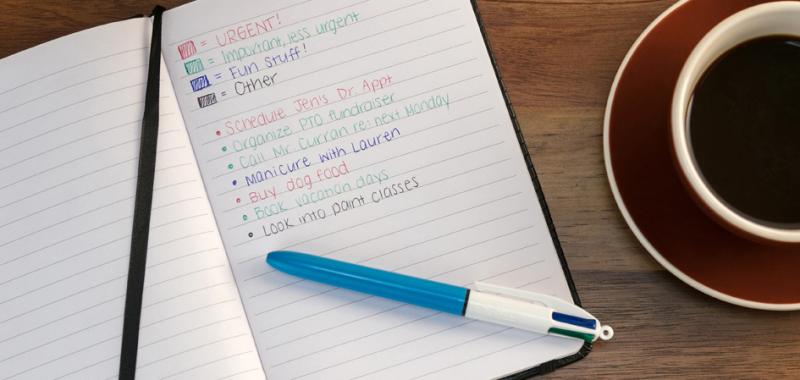 = URGENT!
= Important, less urgent
= Fun Stuff!
= Other
• Schedule Jen's Dr. Appt
• Organize PTO fundraiser
• Call Mr. Curran re: next Monday
• Manicure with Lauren
• Buy dog food
• Book vacation days
• Look into paint classes